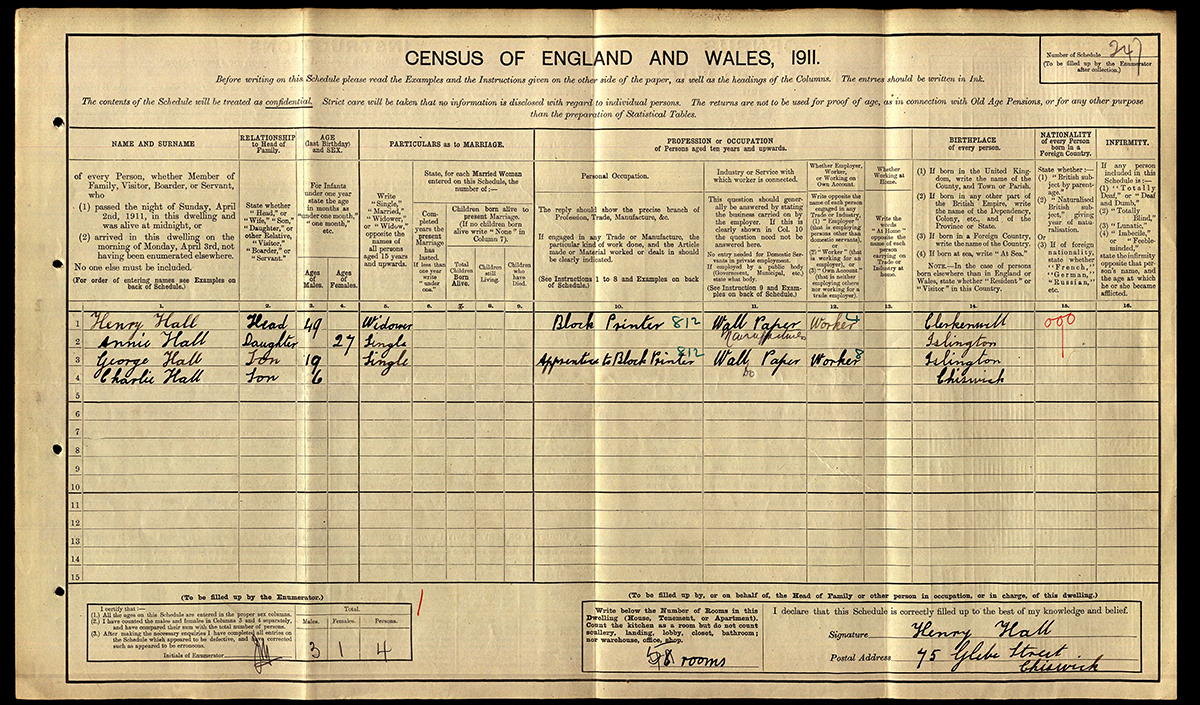 CENSUS OF ENGLAND AND WALES, 1911.
Number of Schedule 247
(To be filled up by the Enumerator
after collection.)
Before writing on this Schedule please read the Examples and the Instructions given on the other side of the paper, as well as the headings of the Columns. The entries should be written in Ink.
The contents of the Schedule will be treated as confidential. Strict care will be taken that no information is disclosed with regard to individual persons. The returns are not to be used for proof of age, as in connection with Old Age Pensions, or for any other purpose
than the preparation of Statistical Tables.
NAME AND SURNAME
RELATIONSHIP
to Head of
Family.
AGE
(last Birthday)
and SEX.
PARTICULARS as to MARRIAGE.
PROFESSION or OCCUPATION
of Persons aged ten years and upwards.
BIRTHPLACE
of every person.
NATIONALITY
of every Person
born in a
Foreign Country.
INFIRMITY.
of every Person, whether Member of
Family, Visitor, Boarder, or Servant,
who
(1) passed the night of Sunday, April
2nd, 1911, in this dwelling and
was alive at midnight, or
(2) arrived in this dwelling on the
morning of Monday, April 3rd, not
having been enumerated elsewhere.
No one else must be included.
(For order of entering names see Examples on
back of Schedule.)
State whether
"Head," or
"Wife," "Son,"
"Daughter," or
other Relative,
"Visitor,"
"Boarder," or
"Servant."
For Infants
under one year
state the age
in months as
"under one month,"
"one month,"
etc.
Ages
of
Males.
Ages
of
Females.
Write
"Single,"
"Married,"
"Widower,"
or "Widow,"
opposite the
names of
all persons
aged 15 years
and upwards.
State, for each Married Woman
entered on this Schedule, the
number of:—
Com-
pleted
years the
present
Marriage
has
lasted.
If less than
one year
write
"under
one."
Children born alive to
present Marriage.
(If no children born
alive write "None" in
Column 7).
Total
Children
Born
Alive.
Children
still
Living.
Children
who
have
Died.
Personal Occupation.
The reply should show the precise branch of
Profession, Trade, Manufacture, &c.
If engaged in any Trade or Manufacture, the
particular kind of work done, and the Article
made or Material worked or dealt in should
be clearly indicated.
(See Instructions 1 to 8 and Examples on back
of Schedule.)
Industry or Service with
which worker is connected.
This question should gener-
ally be answered by stating
the business carried on by
the employer. If this is
clearly shown in Col. 10
the question need not be
answered here.
No entry needed for Domestic Ser-
vants in private employment.
If employed by a public body
(Government, Municipal, etc.)
state what body.
(See Instruction 9 and Exam-
ples on back of Schedule.)
Whether Employer,
Worker,
or Working on
Own Account.
Write opposite the
name of each person
engaged in any
Trade or Industry,
(1) "Employer"
(that is employing
persons other than
domestic servants),
or
(2) "Worker" (that
is working for an
employer), or
(3) "Own Account"
(that is neither
employing others
nor working for a
trade employer).
Whether
Working at
Home.
Write the
words
"At Home"
opposite the
name of each
person
carrying on
Trade or
Industry at
home.
(1) If born in the United King-
dom, write the name of the
County, and Town or Parish.
(2) If born in any other part of
the British Empire, write
the name of the Dependency,
Colony, etc., and of the
Province or State.
(3) If born in a Foreign Country,
write the name of the Country.
(4) If born at sea, write "At Sea."
NOTE.—In the case of persons
born elsewhere than in England or
Wales, state whether "Resident" or
"Visitor" in this Country.
State whether:—
(1) "British sub-
ject by parent-
age,"
(2) "Naturalised
British sub-
ject," giving
year of natu-
ralisation.
Or
(3) If of foreign
nationality,
state whether
"French,"
"German,"
"Russian,"
etc.
If any person
included in this
Schedule is:—
(1) "Totally
Deaf," or "Deaf
and Dumb,"
(2) "Totally
Blind,"
(3) "Lunatic,"
(4) "Imbecile,"
or "Feeble-
minded,"
state the infirmity
opposite that per-
son's name, and
the age at which
he or she became
afflicted.
1. 2. 3. 4. 5. 6. 7. 8. 9. 10. 11. 12. 13. 14. 15. 16.
1 Henry Hall Head 49 Widower Block Printer 812 Wall Paper Worker 4 Clerkenwell 000
Manufacturer
2 Annie Hall Daughter 27 Single Islington
3 George Hall Son 19 Single Apprentice to Block Printer 812 Wall Paper Worker 8 Islington
do
4 Charlie Hall Son 6 Chiswick
5
6
7
8
9
10
11
12
13
14
15
(To be filled up by the Enumerator.)
I certify that:—
(1.) All the ages on this Schedule are entered in the proper sex columns.
(2.) I have counted the males and females in Columns 3 and 4 separately,
and have compared their sum with the total number of persons.
(3.) After making the necessary enquiries I have completed all entries on
the Schedule which appeared to be defective, and have corrected
such as appeared to be erroneous.
Initials of Enumerator
Total.
Males. Females. Persons.
3 1 4
1
(To be filled up by, or on behalf of, the Head of Family or other person in occupation, or in charge, of this dwelling.)
Write below the Number of Rooms in this
Dwelling (House, Tenement, or Apartment).
Count the kitchen as a room but do not count
scullery, landing, lobby, closet, bathroom;
nor warehouse, office, shop.
rooms
I declare that this Schedule is correctly filled up to the best of my knowledge and belief.
Signature Henry Hall
Postal Address 75 Glebe Street
Chiswick